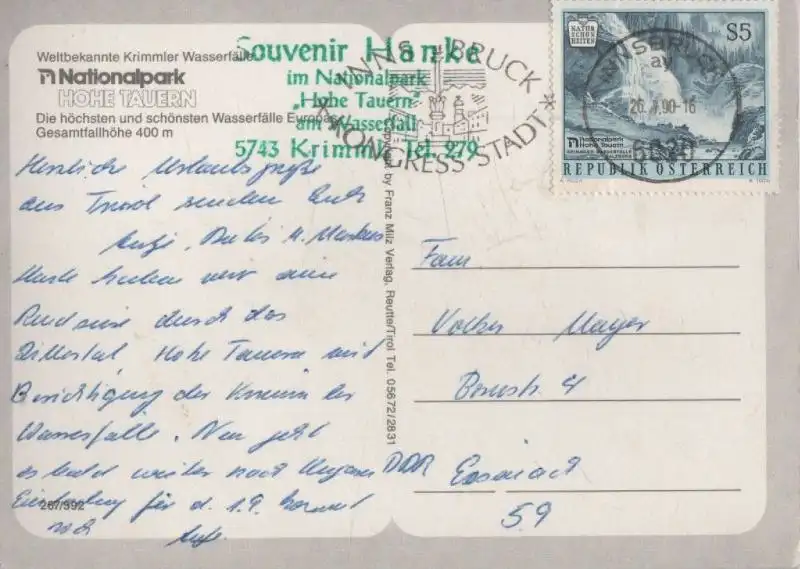 Weltbekannte Krimmler Wasserfälle
Nationalpark
HOHE TAUERN
Die höchsten und schönsten Wasserfälle Europas
Gesamtfallhöhe 400 m
Souvenir Hanke
im Nationalpark
„Hohe Tauern"
am Wasserfall
5743 Krimml Tel. 279
INNSBRUCK
KONGRESS-STADT
NATUR
SCHÖN
HEITEN
S5
INNSBRUCK
ay
90-16
6020
Nationalpark
Hohe Tauern
REPUBLIK ÖSTERREICH
Herzliche Urlaubsgrüße
aus Tirol senden Euch
Antje, u. Markus
Heute haben wir eine
Rundreise durch das
Zillertal Hohe Tauern mit
Besichtigung der Krimmler
Wasserfälle. Nun geht
es bald weiter nach Ungarn
für d. 1.9.
Antje
by Franz Milz Verlag, Reutte/Tirol Tel. 05672/2831
267/392
Fam
Volker Mayer
4
DDR
59